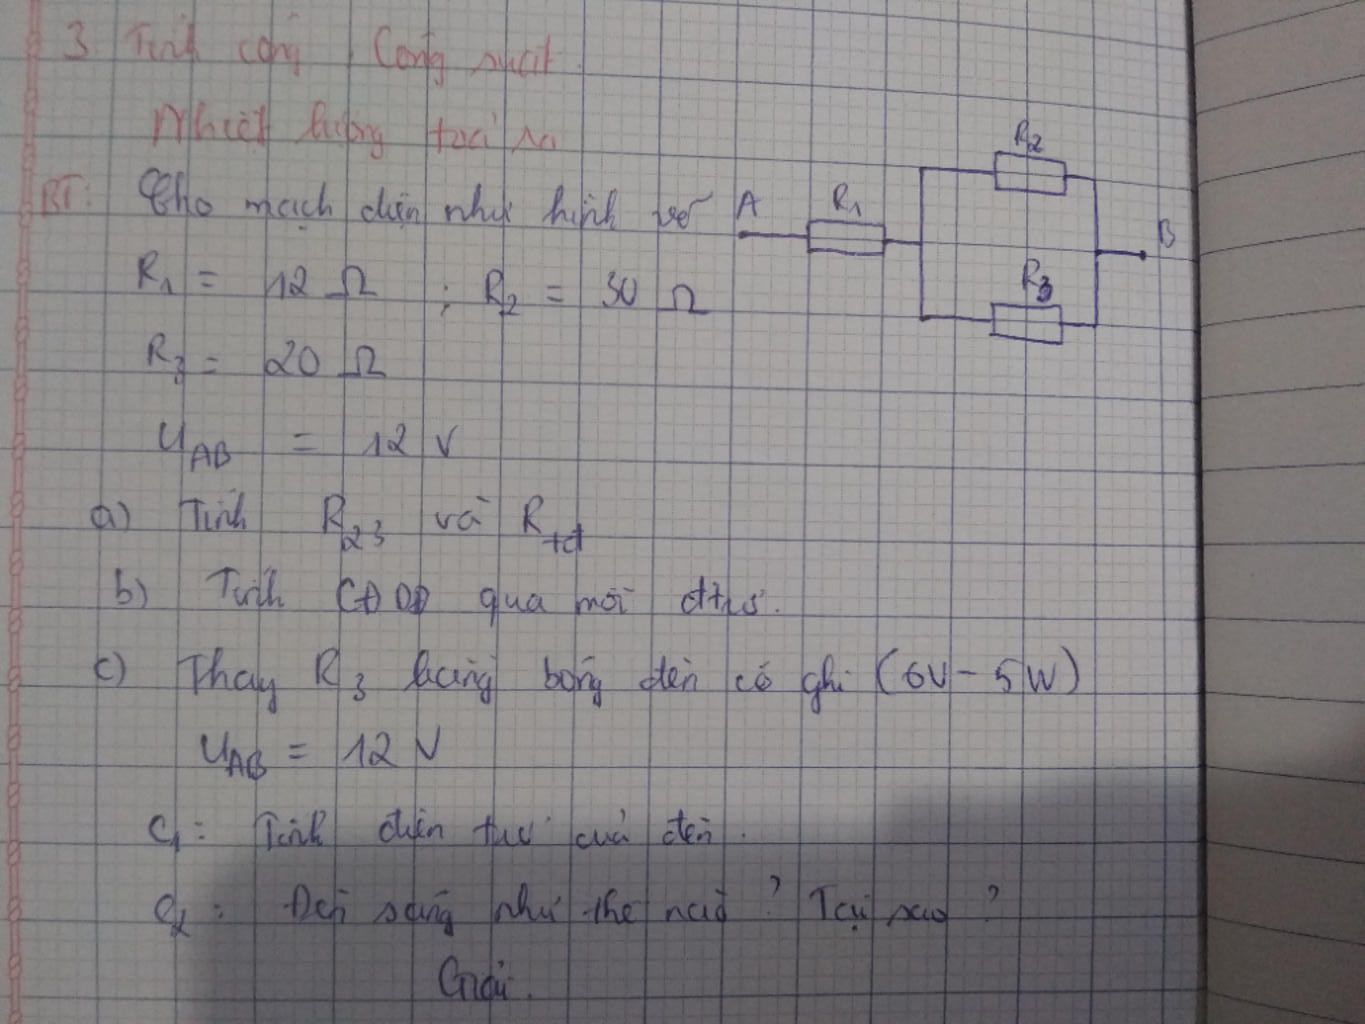 3 Tính công, Công suất
Nhiệt lượng toả ra
BT: Cho mạch điện như hình vẽ
A R1 R2 R3 B
R1 = 12 Ω ; R2 = 30 Ω
R3 = 20 Ω
UAB = 12 V
a) Tính R23 và Rtđ
b) Tính CĐDĐ qua mỗi đtrở.
c) Thay R3 bằng bóng đèn có ghi (6V - 5W)
UAB = 12 V
C1: Tính điện trở của đèn.
C2: Đèn sáng như thế nào? Tại sao?
Giải.